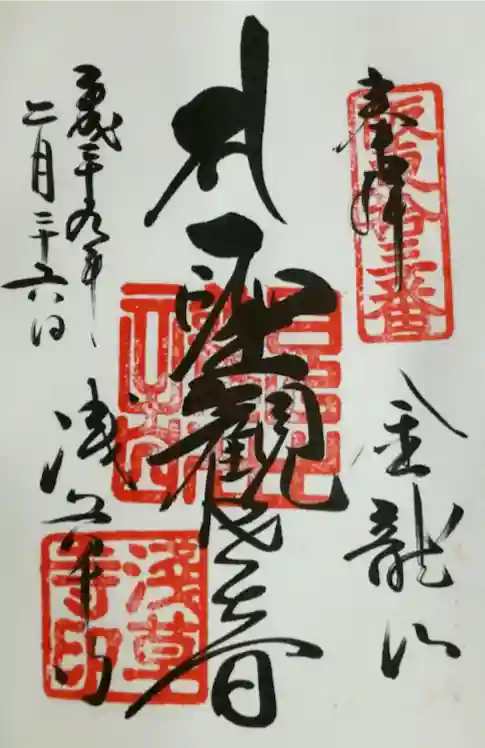 奉拝
坂東拾三番
金龍山
聖観世音
平成二十九年
二月二十六日
浅草寺
浅草寺印